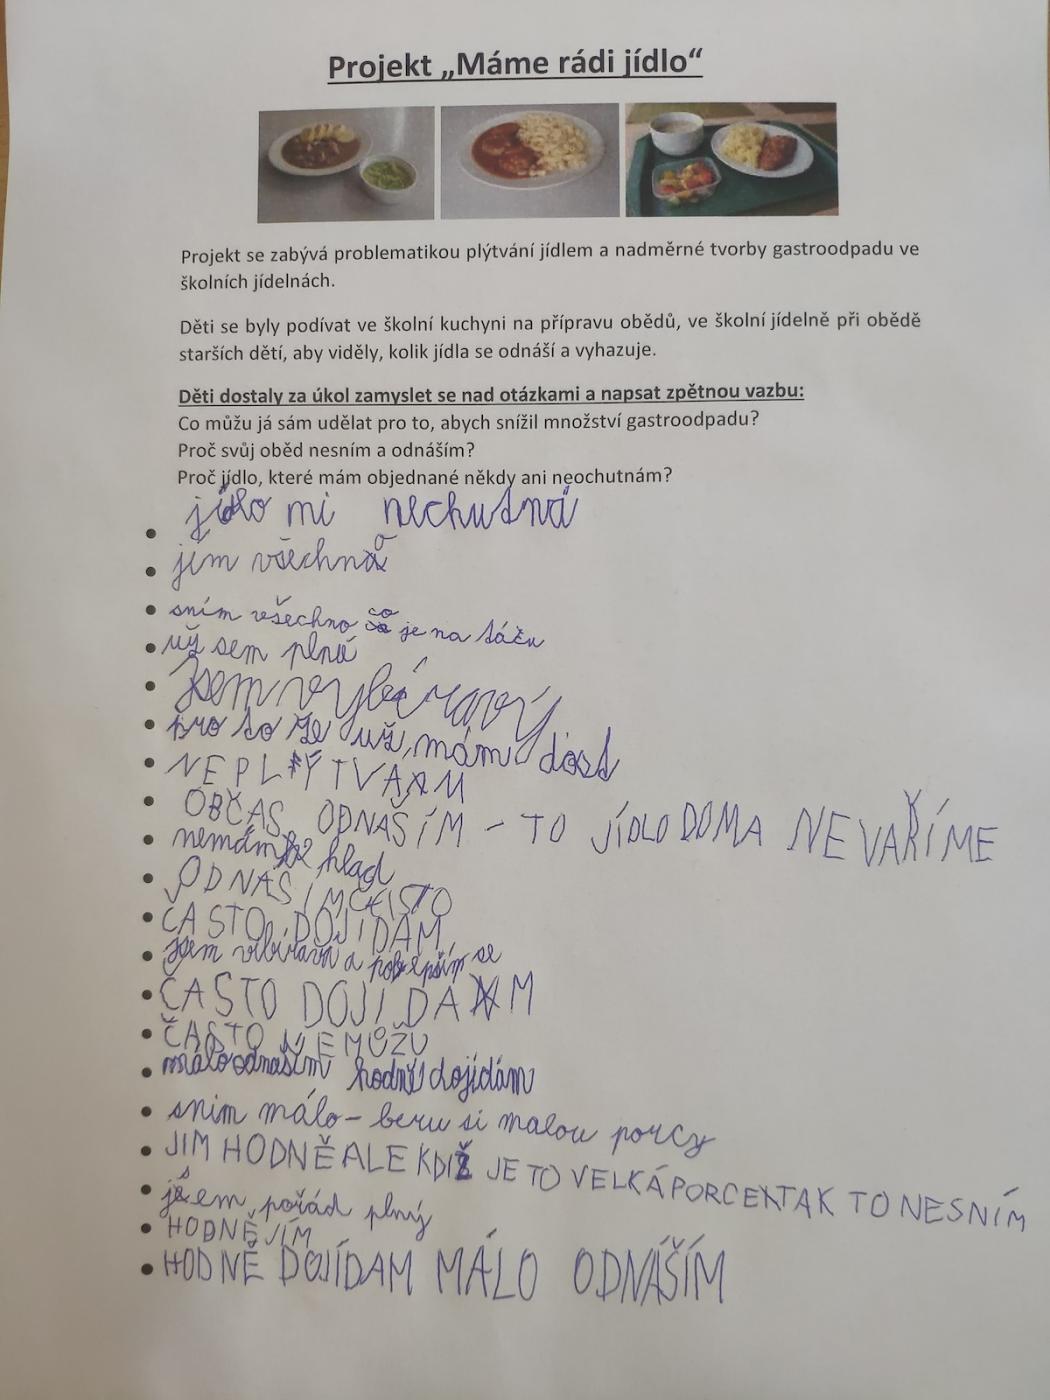 Projekt „Máme rádi jídlo“
Projekt se zabývá problematikou plýtvání jídlem a nadměrné tvorby gastroodpadu ve
školních jídelnách.
Děti se byly podívat ve školní kuchyni na přípravu obědů, ve školní jídelně při obědě
starších dětí, aby viděly, kolik jídla se odnáší a vyhazuje.
Děti dostaly za úkol zamyslet se nad otázkami a napsat zpětnou vazbu:
Co můžu já sám udělat pro to, abych snížil množství gastroodpadu?
Proč svůj oběd nesním a odnáším?
Proč jídlo, které mám objednané někdy ani neochutnám?
jídlo mi nechutná
jím všechno
sním všechno co je na táču
už sem plná
jsem vybíravý
pro to že už mám dost
NEPLÝTVÁM
OBČAS ODNAŠÍM - TO JÍDLO DOMA NEVAŘÍME
nemám hlad
ODNÁŠÍM ČISTO
ČASTO DOJÍDÁM
jsem vibíravá a polepším se
ČASTO DOJIDAM
ČASTO NEMŮŽU
málo odnaším hodně dojídám
snim málo - beru si malou porcy
JIM HODNĚ ALE KDIŽ JE TO VELKÁ PORCE TAK TO NESNÍM
jsem pořád plný
HODNĚ JÍM
HODNĚ DOJÍDAM MÁLO ODNÁŠÍM